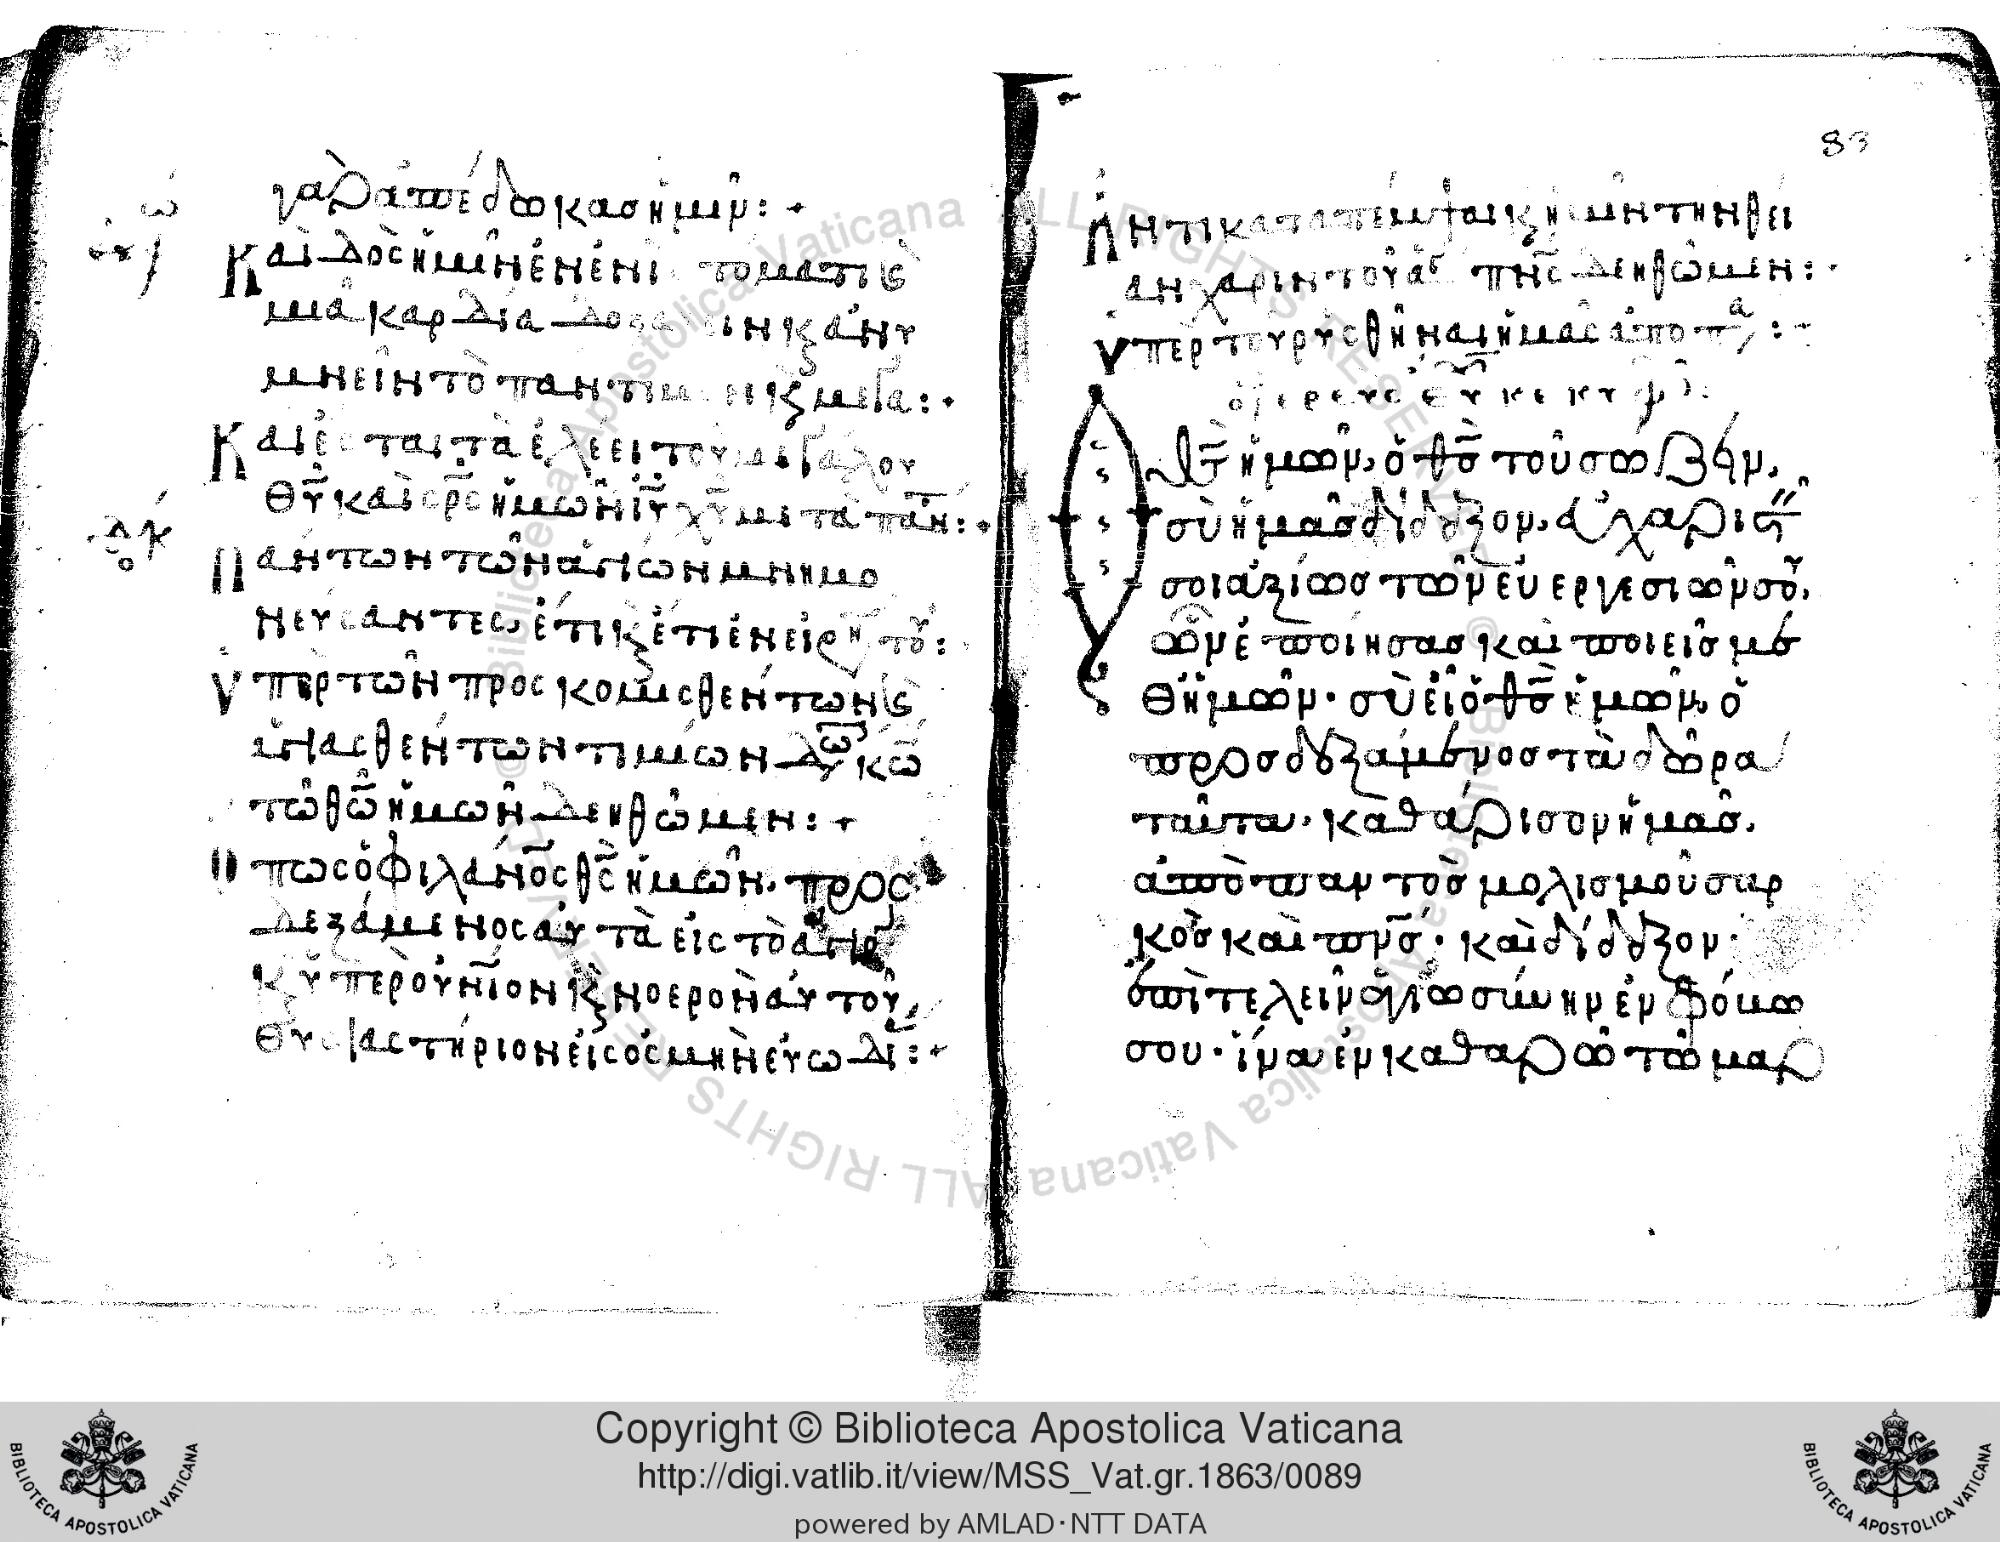 γὰρ ἀπέδωκας ἡμῖν :
Καὶ δὸς ἡμῖν ἐν ἑνὶ στόματι κ
μιᾷ καρδίᾳ δοξάζειν κ ἀνυ
μνεῖν τὸ πάντιμον κ μεγα :
Καὶ ἔσται τὰ ἐλέει τοῦ μεγάλου
θυ καὶ σρς ἡμῶν ιυ χυ μετὰ πάν :
Πάντων τῶν ἁγίων μνημο
νεύσαντες, ἔτι κ ἔτι ἐν εἰρη του :
Ὑπὲρ τῶν προσκομισθέντων κ
ἁγιασθέντων τιμίων δώ κω
τῷ θω ἡμῶν δεηθῶμεν :
Ὅπως ὁ φιλάνος θς ἡμῶν. προς
δεξάμενος αὐτὰ εἰς τὸ ἅγι
κ ὑπὲρουνιον κ νοερὸν αὐτοῦ
θυσιαστήριον εἰς ὀσμὴν εὐωδί :
83
Ἀντικαταπέμψαι κ ἡμῖν τὴν θεί
αν χάριν τοῦ ἁγ πνς δεηθῶμεν :
Ὑπὲρ τοῦ ρυσθῆναι ἡμᾶς ἀπο π :
ὁ ἱερευς
θς ἡμῶν, ὁ θς τοῦ σώζειν,
σὺ ἡμᾶς δίδαξον, εὐχαριστ
σοι ἀξίως τῶν εὐεργεσιῶν σου,
ὧν ἐποίησας καὶ ποιεῖς με
θ ἡμῶν · σὺ εἶ ὁ θς ἡμῶν, ὁ
προσδεξάμενος τὰ δῶρα
ταῦτα · καθάρισον ἡμᾶς.
ἀπὸ παντὸς μολισμοῦ σαρ
κὸς καὶ πνς · καὶ δίδαξον ·
ἐπιτελεῖν ἁγιωσύνην ἐν φόβω
σου · ἵνα ἐν καθαρῶ τῶ μαρ
Copyright © Biblioteca Apostolica Vaticana
http://digi.vatlib.it/view/MSS_Vat.gr.1863/0089
powered by AMLAD·NTT DATA